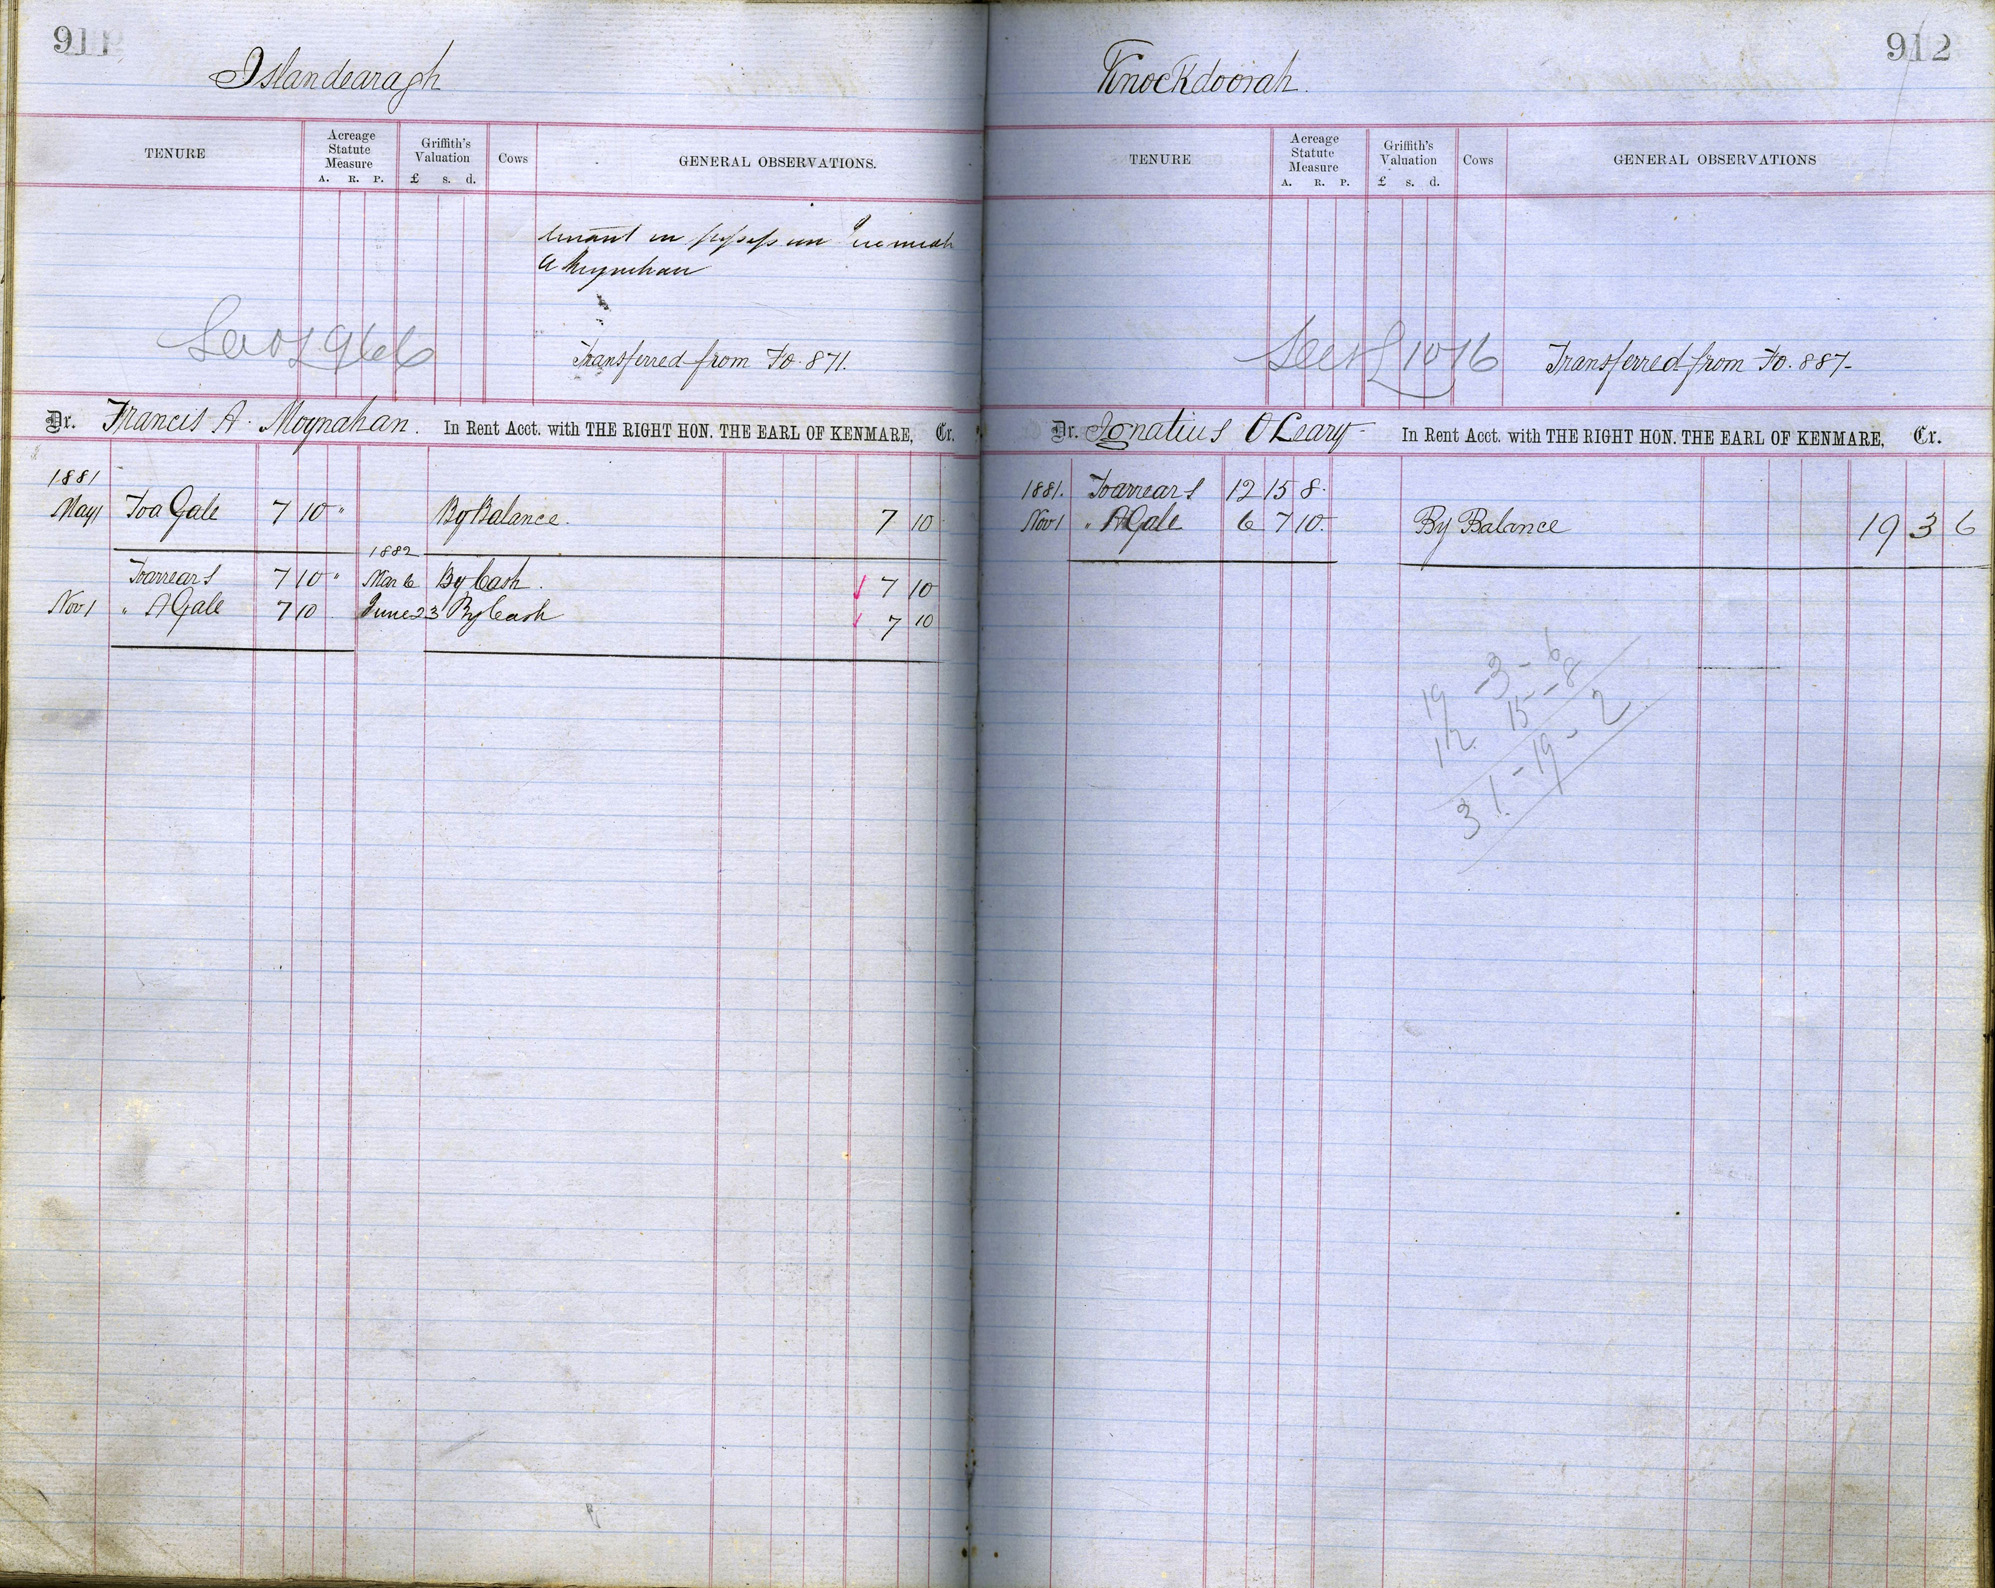 911
Islandearagh
TENURE
Acreage Statute Measure
A. R. P.
Griffith's Valuation
£ s. d.
Cows
GENERAL OBSERVATIONS.
tenant in possession Jeremiah
A Moynihan
966
Transferred from Fo. 871.
Dr. Francis A. Moynahan. In Rent Acct. with THE RIGHT HON. THE EARL OF KENMARE, Cr.
1881
May 1 To a Gale 7 10 " By Balance. 7 10
1882
To arrears 7 10 " Mar 6 By Cash. 7 10
Nov 1 " A Gale 7 10 June 23 By Cash 7 10
912
Knockdoorah.
TENURE
Acreage Statute Measure
A. R. P.
Griffith's Valuation
£ s. d.
Cows
GENERAL OBSERVATIONS
See 1016
Transferred from Fo. 887-
Dr. Ignatius O Leary In Rent Acct. with THE RIGHT HON. THE EARL OF KENMARE, Cr.
1881. To arrears 12 15 8.
Nov 1 " A Gale 6 7 10. By Balance 19 3 6
19 - 3 - 6
12. 15 - 8
31. - 19 - 2